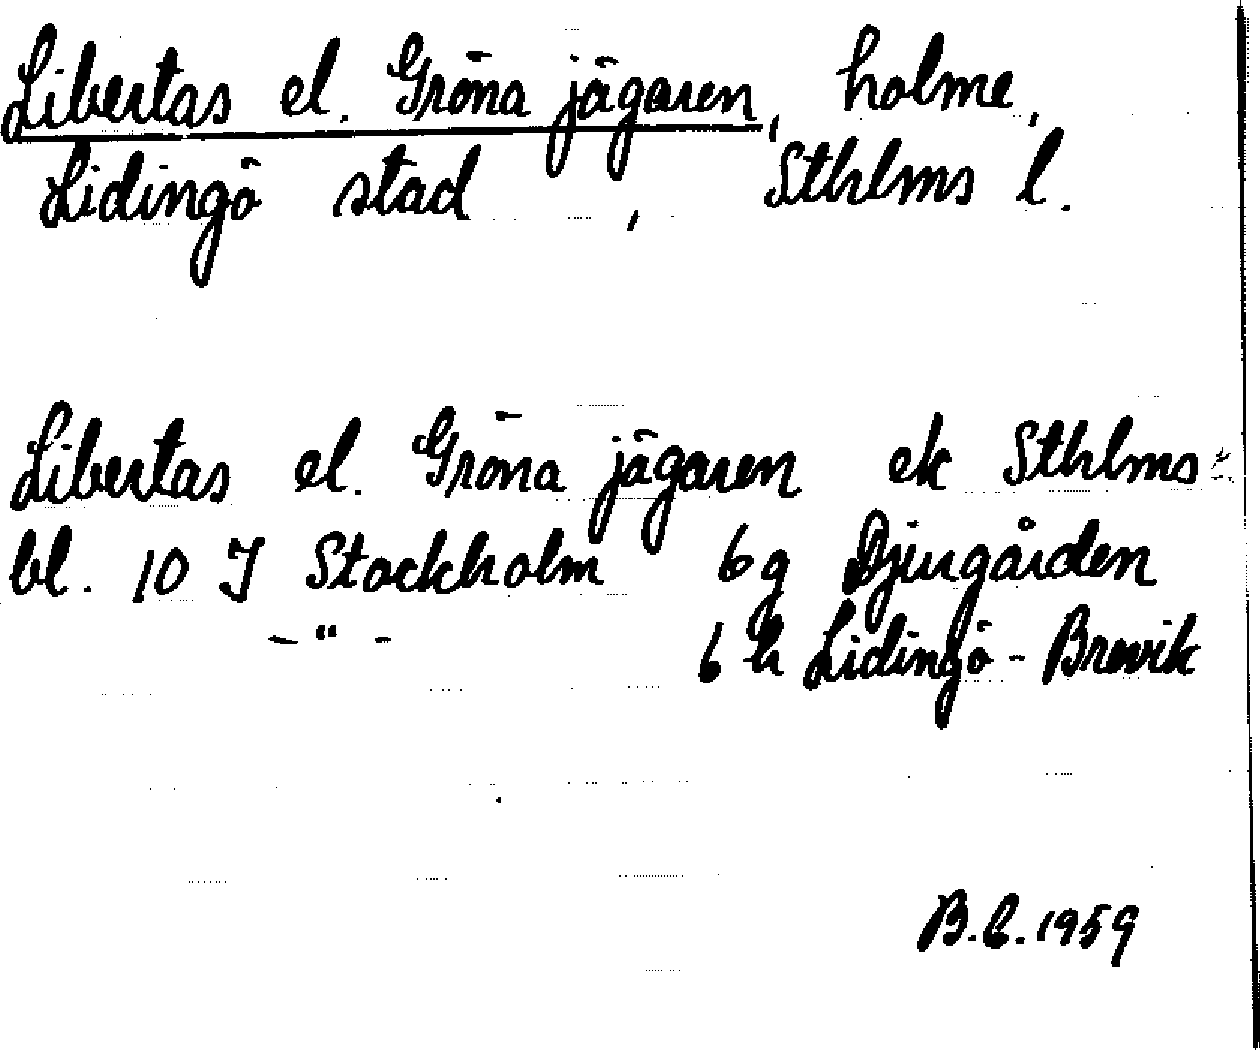 Libertas el. Gröna jägaren, holme,
Lidingö stad, Sthlms l.
Libertas el. Gröna jägaren ek Sthlms:
bl. 10 I Stockholm 6 g Djurgården
-"- 6 h Lidingö - Brevik
B.C. 1959